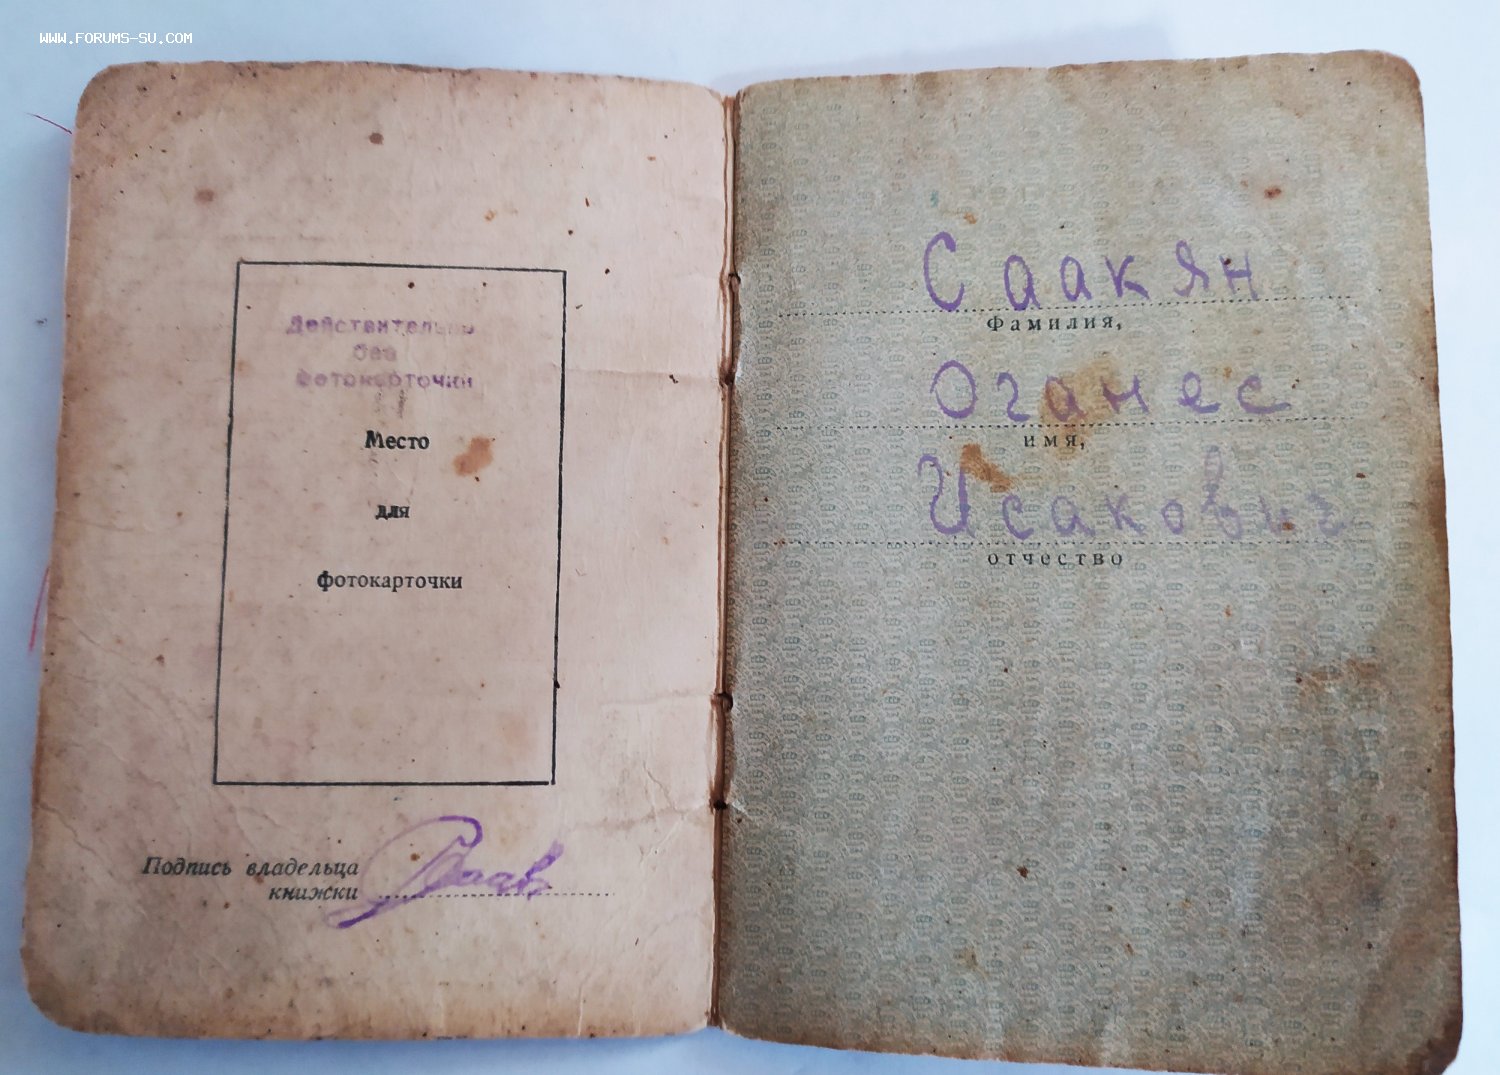 WWW.FORUMS-SU.COM
Действительно
без
фотокарточки
Место
для
фотокарточки
Подпись владельца
книжки
Саакян
Фамилия,
Оганес
имя,
Исакович
отчество